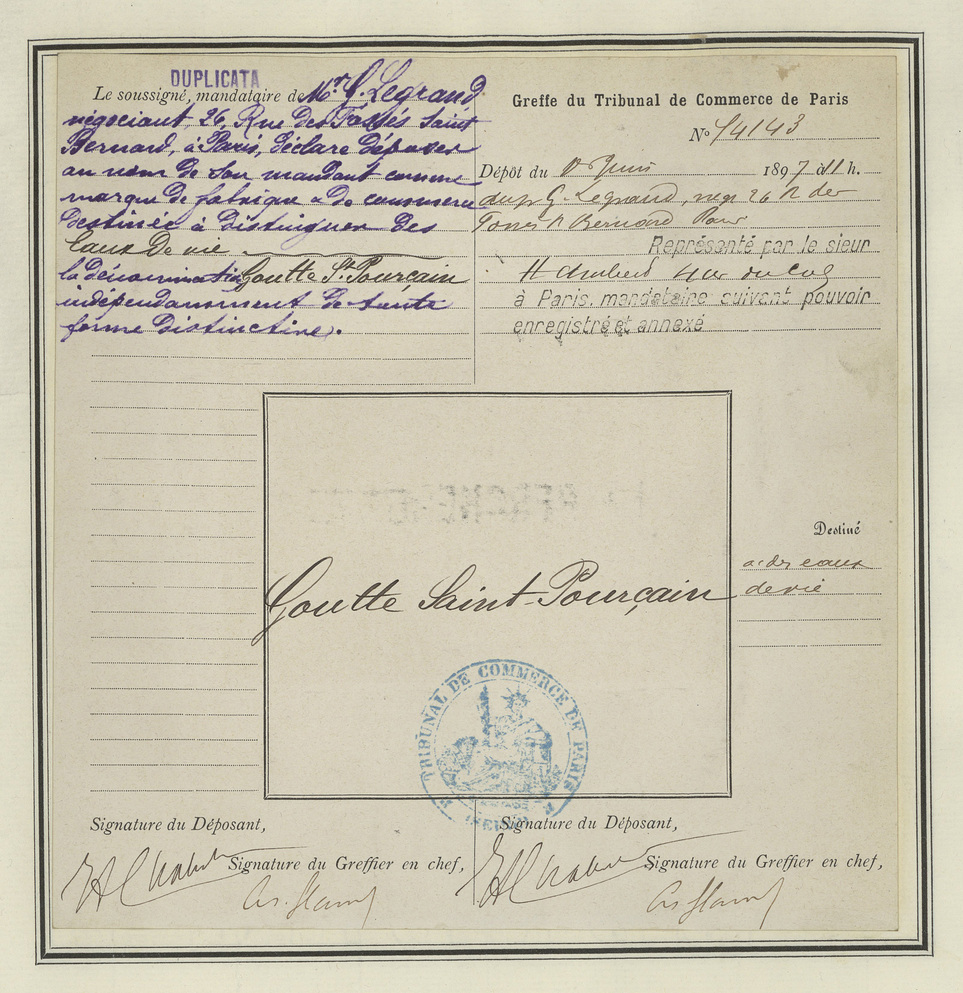 DUPLICATA
Le soussigné, mandataire de Mr G. Legrand
négociant, 26, Rue des Fossés Saint
Bernard, à Paris, déclare déposer
au nom de son mandant comme
marque de fabrique & de commerce
destinée à distinguer des
Eaux de vie
la dénomination Goutte St Pourçain
indépendamment de toute
forme distinctive.
Greffe du Tribunal de Commerce de Paris
No 54143
Dépôt du Juin 1897 à 11 h.
G. Legrand, 26 r. des
St Bernard Paris
Représenté par le sieur
H
à Paris, mandataire suivant pouvoir
enregistré et annexé
Goutte Saint-Pourçain
Destiné
à des eaux
de vie
TRIBUNAL DE COMMERCE DE PARIS
Signature du Déposant,
Signature du Greffier en chef,
Signature du Déposant,
Signature du Greffier en chef,